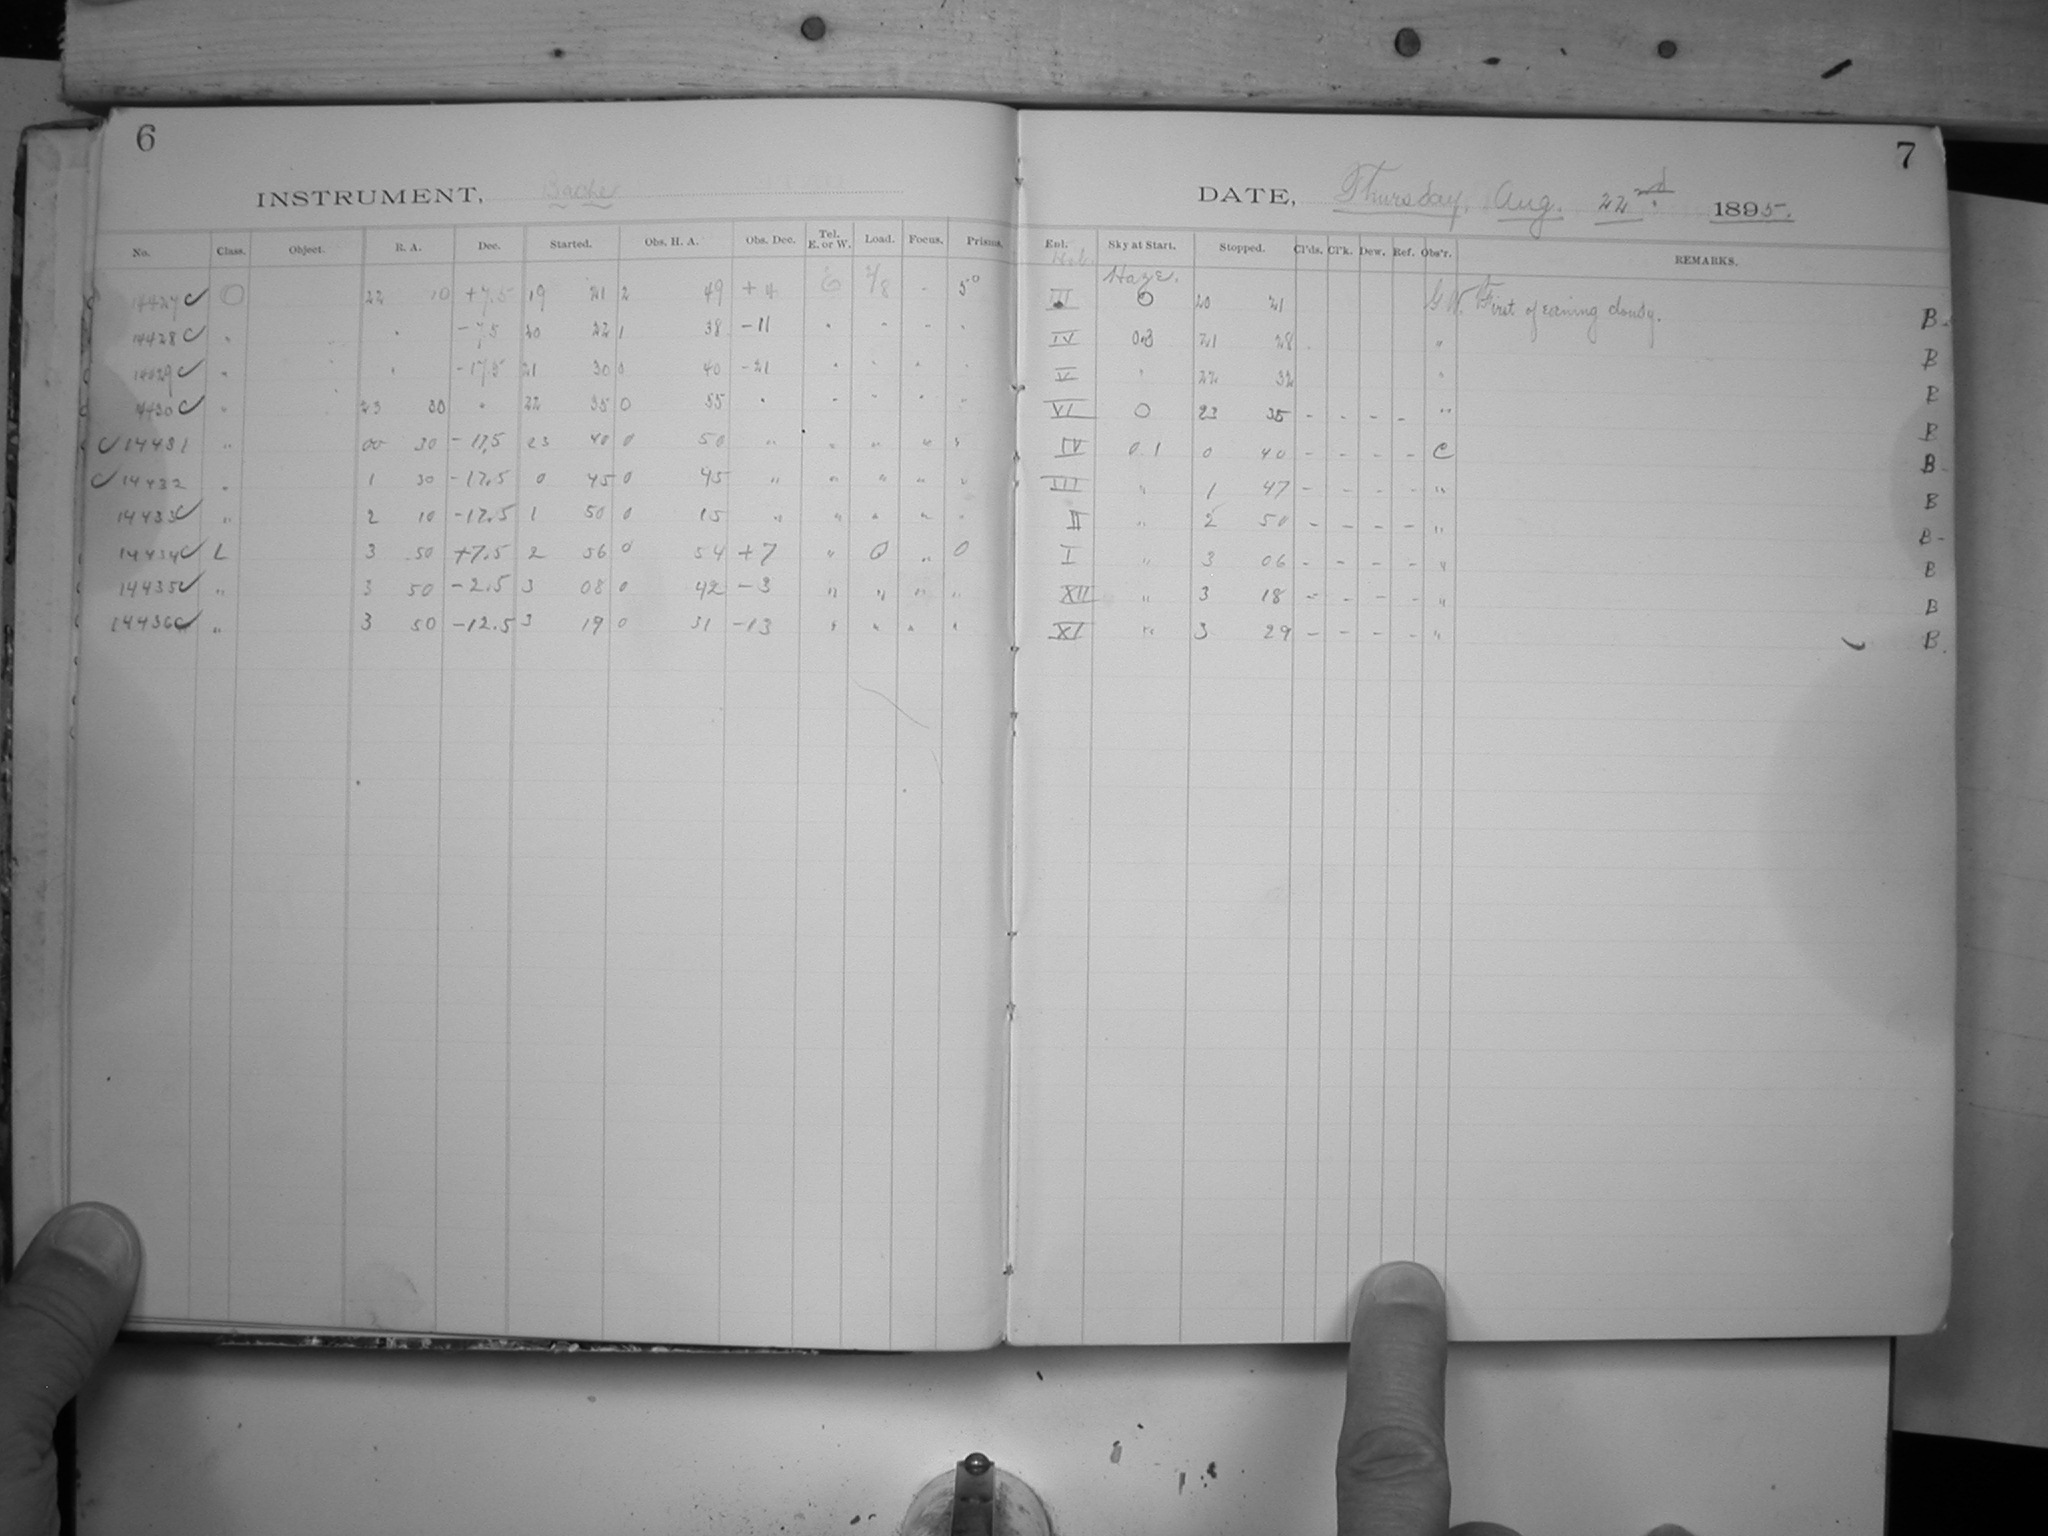 6
INSTRUMENT, Bache
No. Class. Object. R. A. Dec. Started. Obs. H. A. Obs. Dec. Tel. E. or W. Load. Focus. Prisms.
14427 O 22 10 +7.5 19 21 2 49 +4 8 - 5°
14428 " " -7.5 20 22 1 38 -11 " - - "
14429 " " -17.5 21 30 0 40 -21 " " " "
14430 " 23 30 " 22 35 0 55 " " " " "
14431 " 00 30 -17.5 23 40 0 50 " " " " "
14432 " 1 30 -17.5 0 45 0 45 " " " " "
14433 " 2 10 -17.5 1 50 0 15 " " " " "
14434 L 3 50 +7.5 2 56 0 54 +7 " Q " 0
14435 " 3 50 -2.5 3 08 0 42 -3 " " " "
14436 " 3 50 -12.5 3 19 0 31 -13 " " " "
7
DATE, Thursday, Aug. 22nd. 1895.
Enl. Sky at Start. Stopped. Cl'ds. Cl'k. Dew. Ref. Obs'r. REMARKS.
Haze.
III 0 20 21 G.W. First of evening cloudy. B
IV 0.3 21 28 " B
V " 22 32 " B
VI 0 23 35 - - - - " B
IV 0.1 0 40 - - - - C B
III " 1 47 - - - - " B
II " 2 50 - - - - " B
I " 3 06 - - - - " B
XII " 3 18 - - - - " B
XI " 3 29 - - - - " B